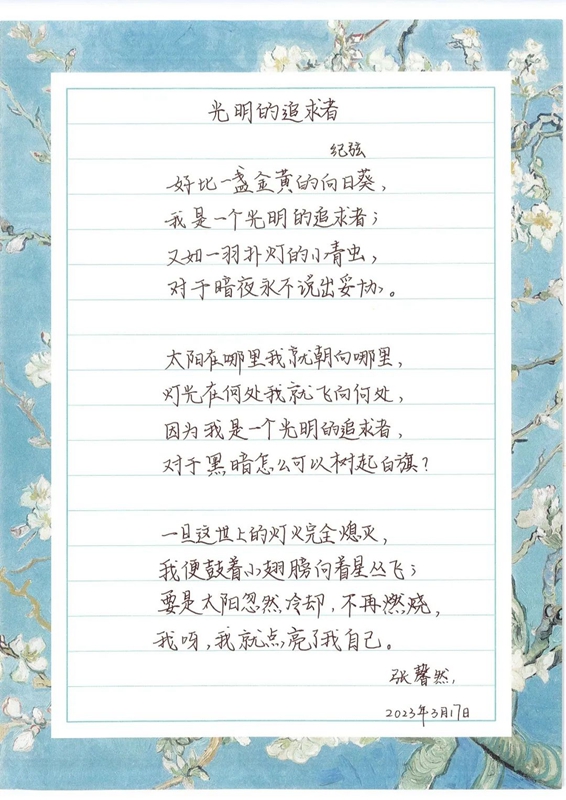 光明的追求者
纪弦
好比一盏金黄的向日葵，
我是一个光明的追求者；
又如一羽扑灯的小青虫，
对于暗夜永不说出妥协。
太阳在哪里我就朝向哪里，
灯光在何处我就飞向何处，
因为我是一个光明的追求者，
对于黑暗怎么可以树起白旗？
一旦这世上的灯火完全熄灭，
我便鼓着小翅膀向着星丛飞；
要是太阳忽然冷却，不再燃烧，
我呀，我就点亮了我自己。
张馨然.
2023年3月17日